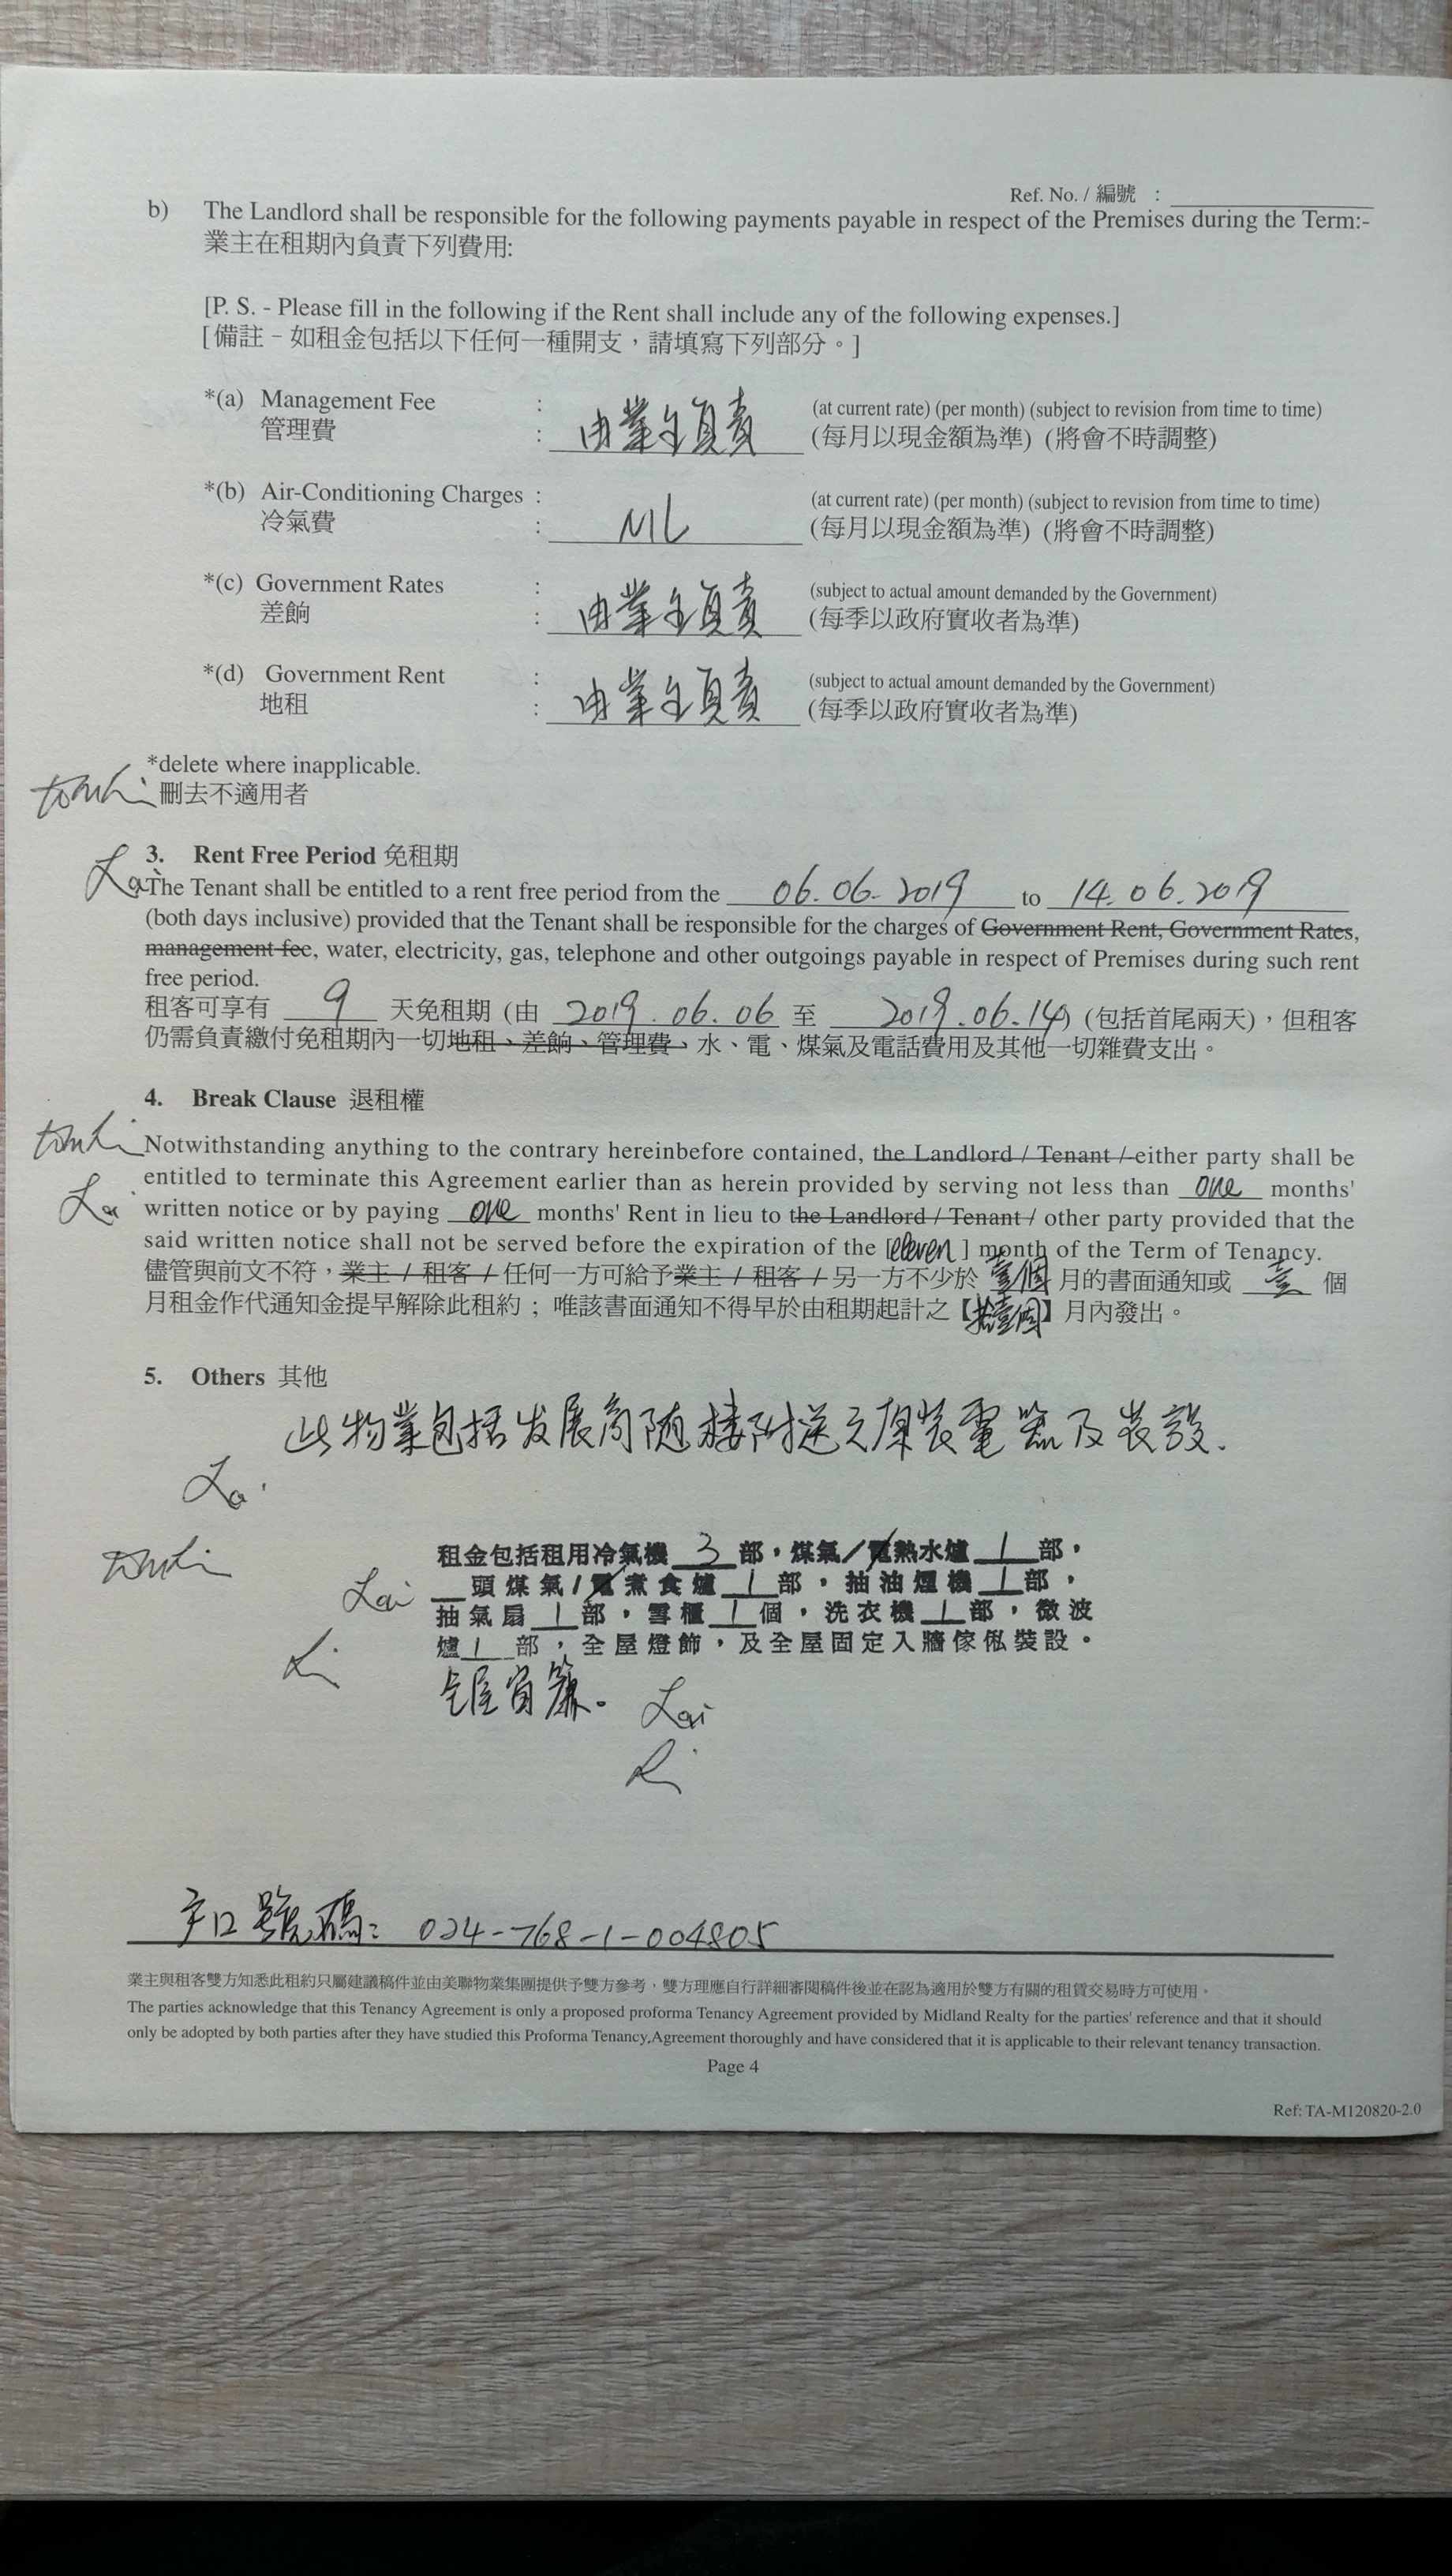 Ref. No. / 編號 :
b) The Landlord shall be responsible for the following payments payable in respect of the Premises during the Term:-
業主在租期內負責下列費用:
[P. S. - Please fill in the following if the Rent shall include any of the following expenses.]
[備註－如租金包括以下任何一種開支，請填寫下列部分。]
*(a) Management Fee : (at current rate) (per month) (subject to revision from time to time)
管理費 : 由業主負責 (每月以現金額為準) (將會不時調整)
*(b) Air-Conditioning Charges : (at current rate) (per month) (subject to revision from time to time)
冷氣費 : NIL (每月以現金額為準) (將會不時調整)
*(c) Government Rates : (subject to actual amount demanded by the Government)
差餉 : 由業主負責 (每季以政府實收者為準)
*(d) Government Rent : (subject to actual amount demanded by the Government)
地租 : 由業主負責 (每季以政府實收者為準)
*delete where inapplicable.
刪去不適用者
3. Rent Free Period 免租期
Lai
The Tenant shall be entitled to a rent free period from the 06.06.2019 to 14.06.2019
(both days inclusive) provided that the Tenant shall be responsible for the charges of Government Rent, Government Rates,
management fee, water, electricity, gas, telephone and other outgoings payable in respect of Premises during such rent
free period.
租客可享有 9 天免租期 (由 2019.06.06 至 2019.06.14) (包括首尾兩天)，但租客
仍需負責繳付免租期內一切地租、差餉、管理費、水、電、煤氣及電話費用及其他一切雜費支出。
4. Break Clause 退租權
Notwithstanding anything to the contrary hereinbefore contained, the Landlord / Tenant / either party shall be
entitled to terminate this Agreement earlier than as herein provided by serving not less than one months'
Lai
written notice or by paying one months' Rent in lieu to the Landlord / Tenant / other party provided that the
said written notice shall not be served before the expiration of the [eleven] month of the Term of Tenancy.
儘管與前文不符，業主 / 租客 / 任何一方可給予業主 / 租客 / 另一方不少於 壹個 月的書面通知或 壹 個
月租金作代通知金提早解除此租約；唯該書面通知不得早於由租期起計之【拾壹個】月內發出。
5. Others 其他
此物業包括发展商随樓附送之原裝電器及裝設.
Lai
租金包括租用冷氣機 3 部，煤氣/電熱水爐 1 部，
Lai
頭煤氣/電煮食爐 1 部，抽油煙機 1 部，
抽氣扇 1 部，雪櫃 1 個，洗衣機 1 部，微波
爐 1 部，全屋燈飾，及全屋固定入牆傢俬裝設。
全屋窗簾。
Lai
戶口號碼: 024-768-1-004805
業主與租客雙方知悉此租約只屬建議稿件並由美聯物業集團提供予雙方參考，雙方理應自行詳細審閱稿件後並在認為適用於雙方有關的租賃交易時方可使用。
The parties acknowledge that this Tenancy Agreement is only a proposed proforma Tenancy Agreement provided by Midland Realty for the parties' reference and that it should
only be adopted by both parties after they have studied this Proforma Tenancy Agreement thoroughly and have considered that it is applicable to their relevant tenancy transaction.
Page 4
Ref: TA-M120820-2.0